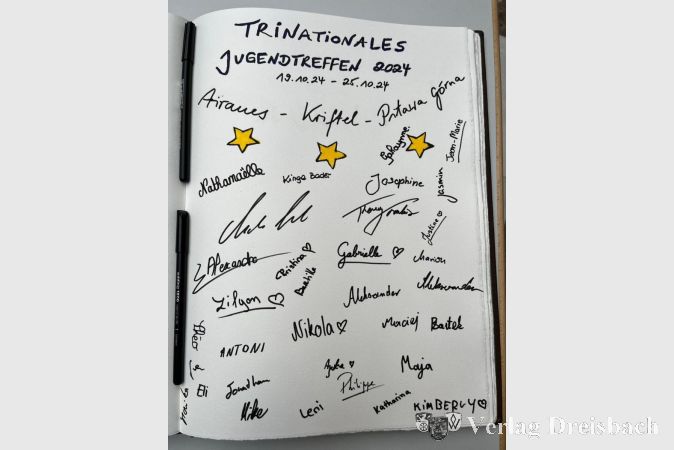 TRINATIONALES
JUGENDTREFFEN 2024
19.10.24 - 25.10.24
Airaines - Kriftel - Pilawa Górna
Jean-Marie
Nathanaëlle
Kinga Bader
Josephine
Jasmin
Justine
Alexandre
Cristina
Bastille
Gabrielle
Marion
Aleksander
Lilyan
Aleksander
Nikola
Maciej
Bartek
ANTONI
Maja
Philippe
Eli
Jonathan
Mike
Leni
Katharina
KIMBERLY
Verlag Dreisbach